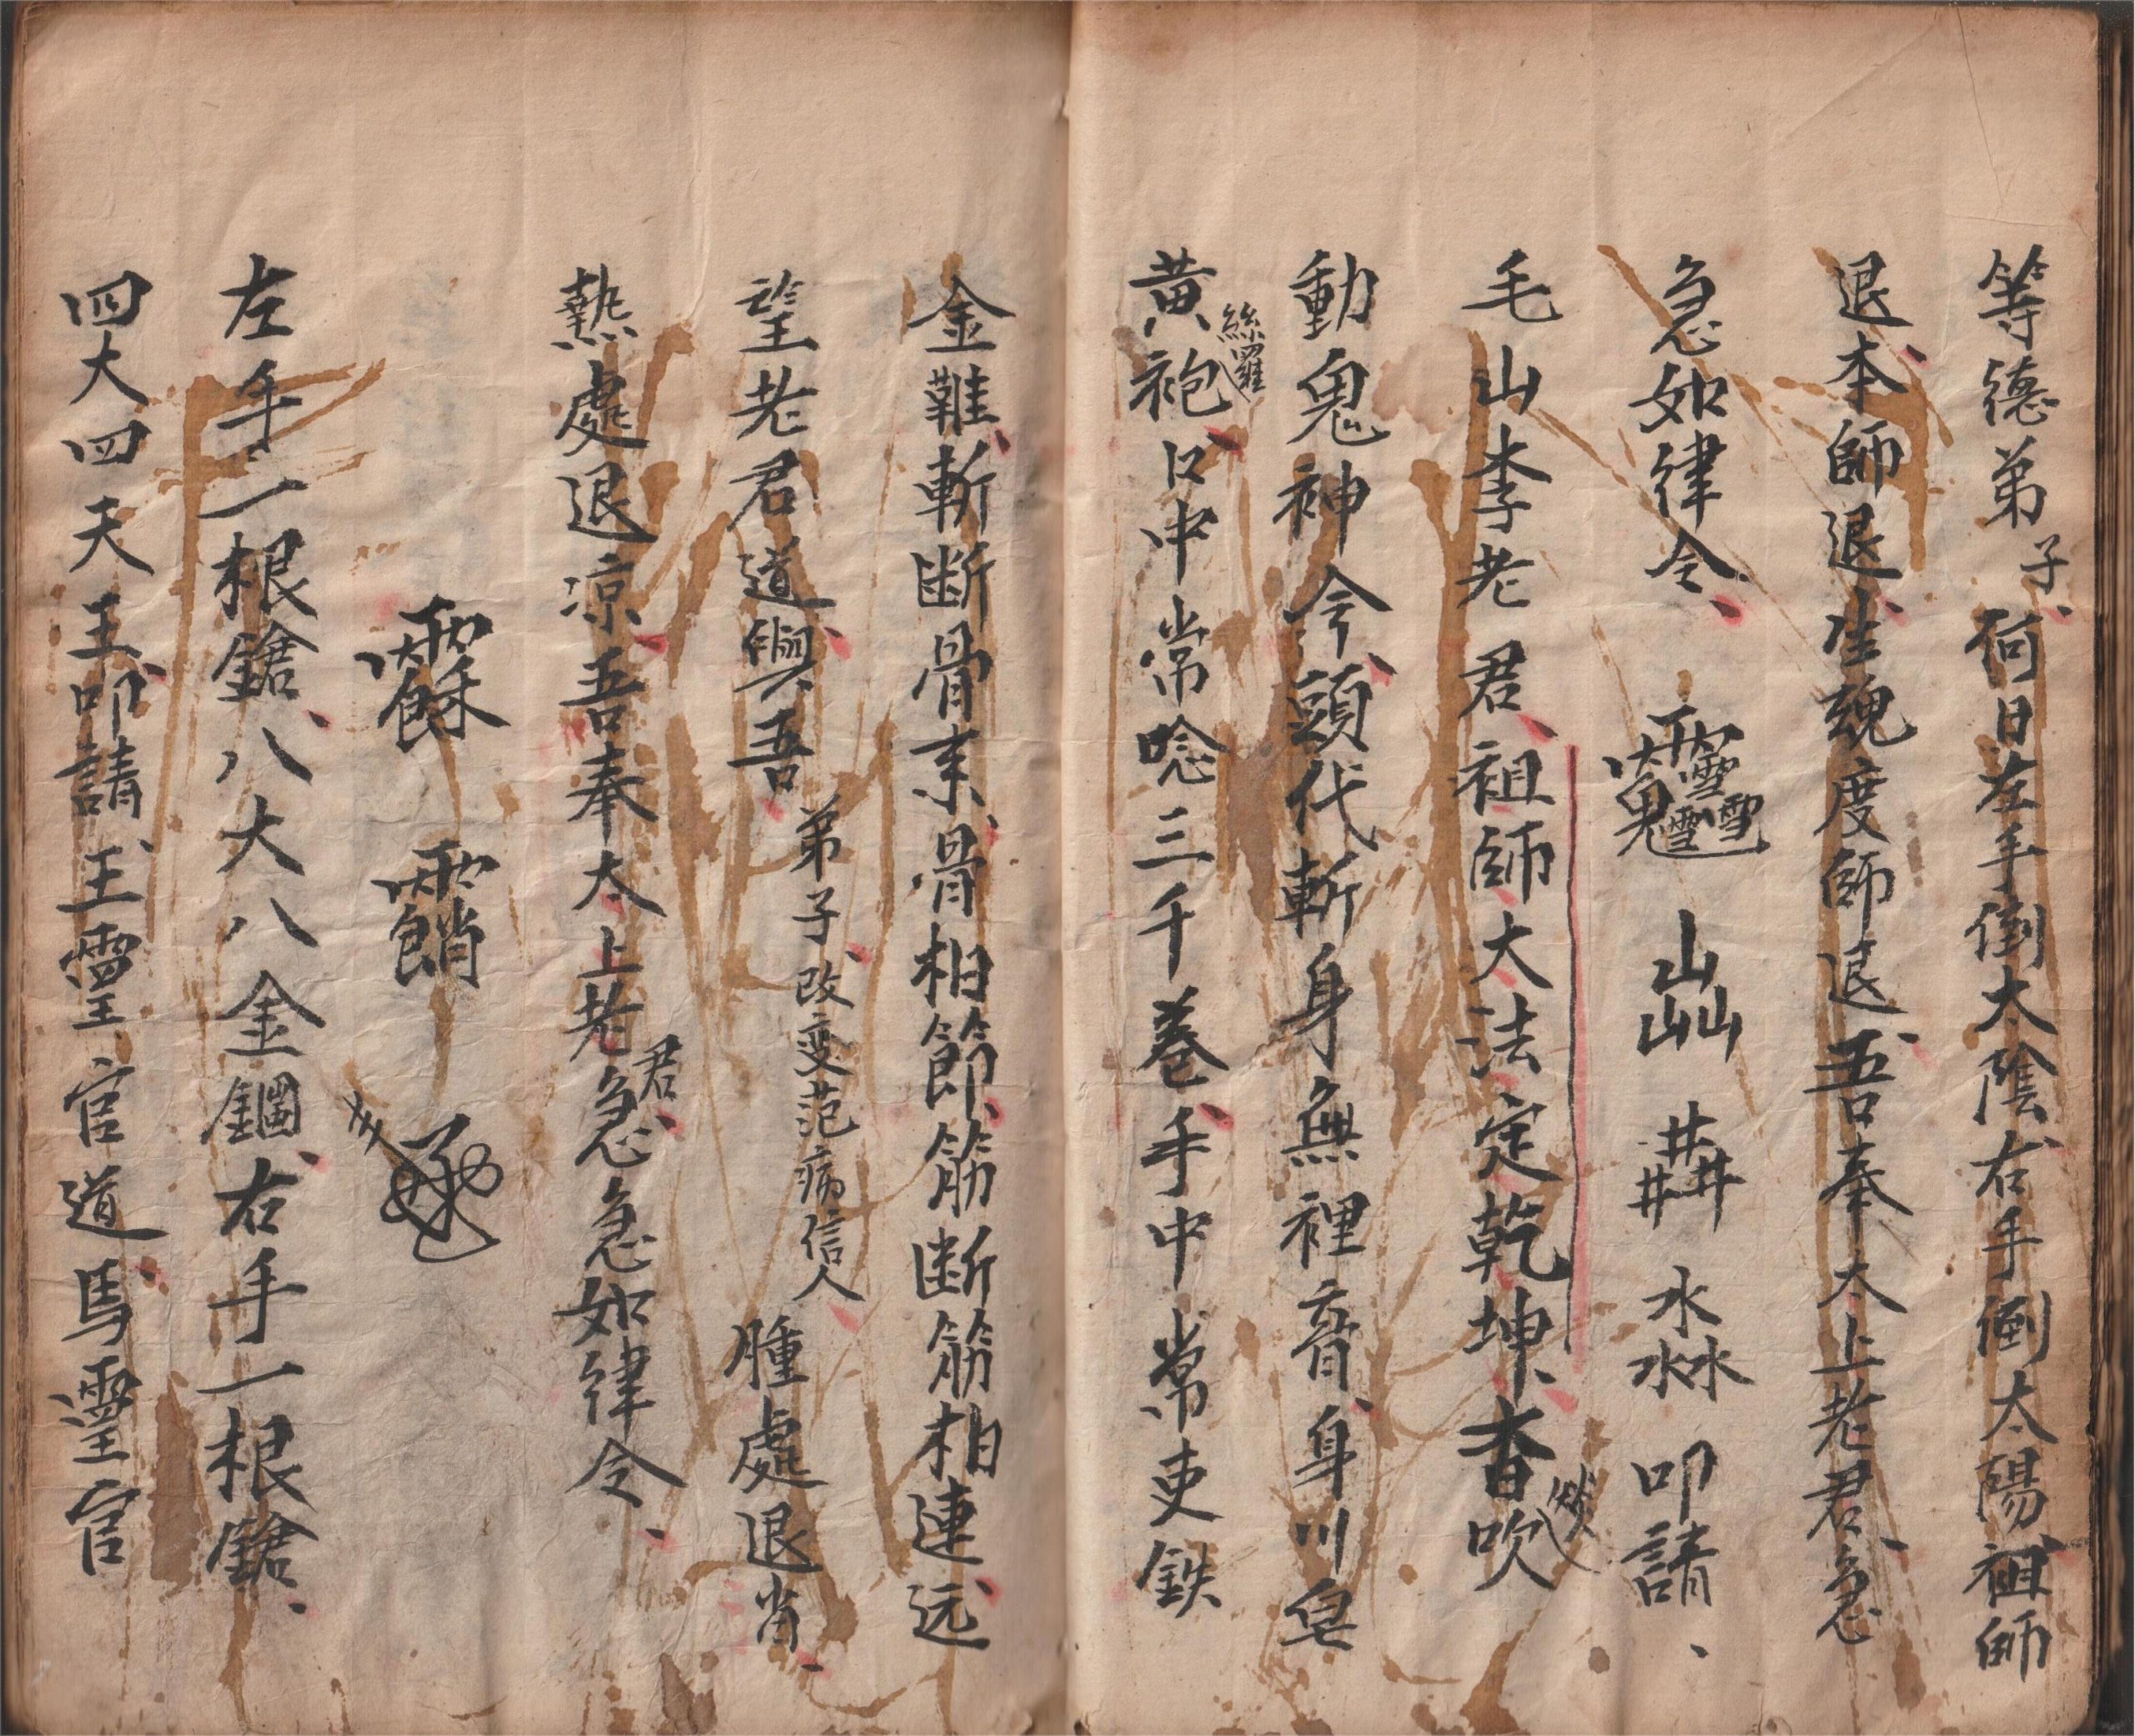 等德弟子何日左手倒太陰右手倒太陽祖師
退本師退生魂度師退吾奉太上老君急
急如律令 山山山 井井井 水水水 叩請
毛山李老君祖師大法定乾坤杳燃吹
動鬼神今頭代斬身無裡育身川皂
黄絲羅袍口中常唸三千卷手中常吏鉄
金難斬断骨来骨相節筋断筋相連远
望老君道與吾弟子改变范病信人腫處退肖
熱處退凉吾奉太上老君急急如律令
左手一根鎗八大八金鋼右手一根鎗
四大四天王叩請王靈官道馬靈官